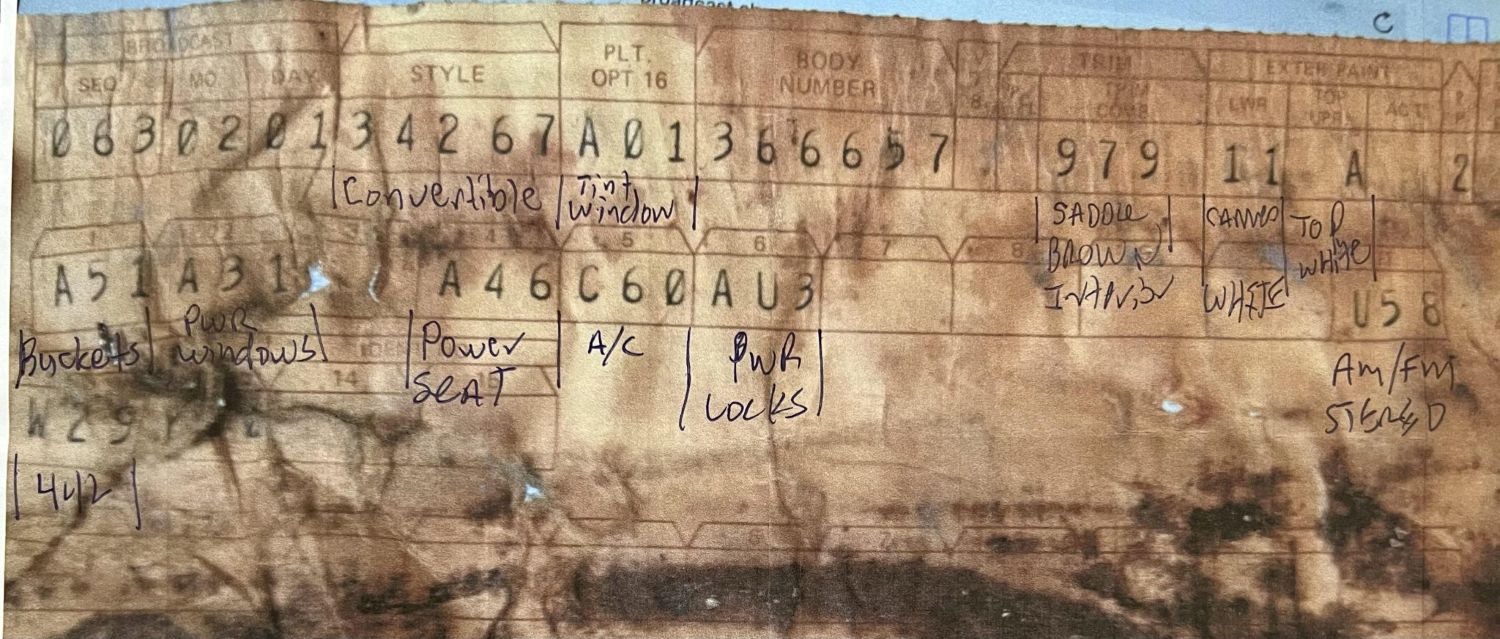 BROADCAST STYLE PLT. OPT 16 BODY NUMBER TRIM EXTER PAINT
SEQ MO DAY TRIM COMB LWR TOP UPR ACT
063 02 01 34267 A01 366657 979 11 A 2
Convertible Tint Window SADDLE BROWN CAMEO WHITE TOP White
1 2 3 4 5 6 7 8
A51 A31 A46 C60 AU3 U58
Buckets PWR windows Power SEAT A/C PWR LOCKS Am/Fm
14
W29
442